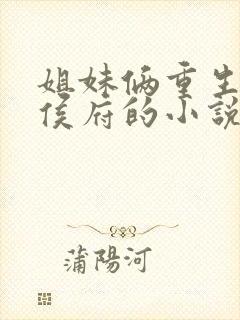 姐妹俩重生
侯府的小說
蒲陽河